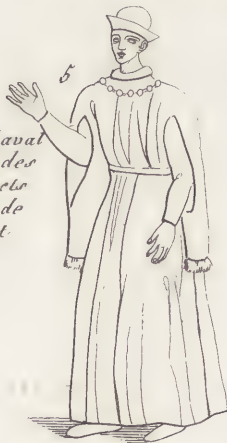 5
aval
des
ets
de
t.